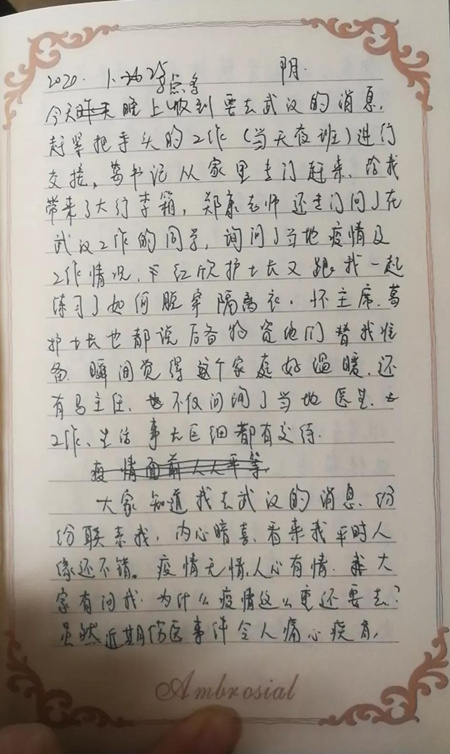 2020. 1. 25 阴.
今天晚上收到要去武汉的消息,
赶紧把手头的工作(当天夜班)进行
交接,葛书记从家里专门赶来,给我
带来了大行李箱,郑康老师还专门问了在
武汉工作的同学,询问了当地疫情及
工作情况,红欣护士长又跟我一起
练习了如何脱穿隔离衣,怀主席、葛
护士长也都说后备物资他们替我准
备,瞬间觉得这个家庭好温暖.还
有马主任,也不仅询问了当地医生,
工作、生活事无巨细都有交待.
疫情面前人人平等
大家知道我去武汉的消息,纷
纷联系我,内心暗喜,看来我平时人
缘还不错。疫情无情,人心有情.大
家有问我:为什么疫情这么重还要去?
虽然近期伤医事件令人痛心疾首,
Ambrosial